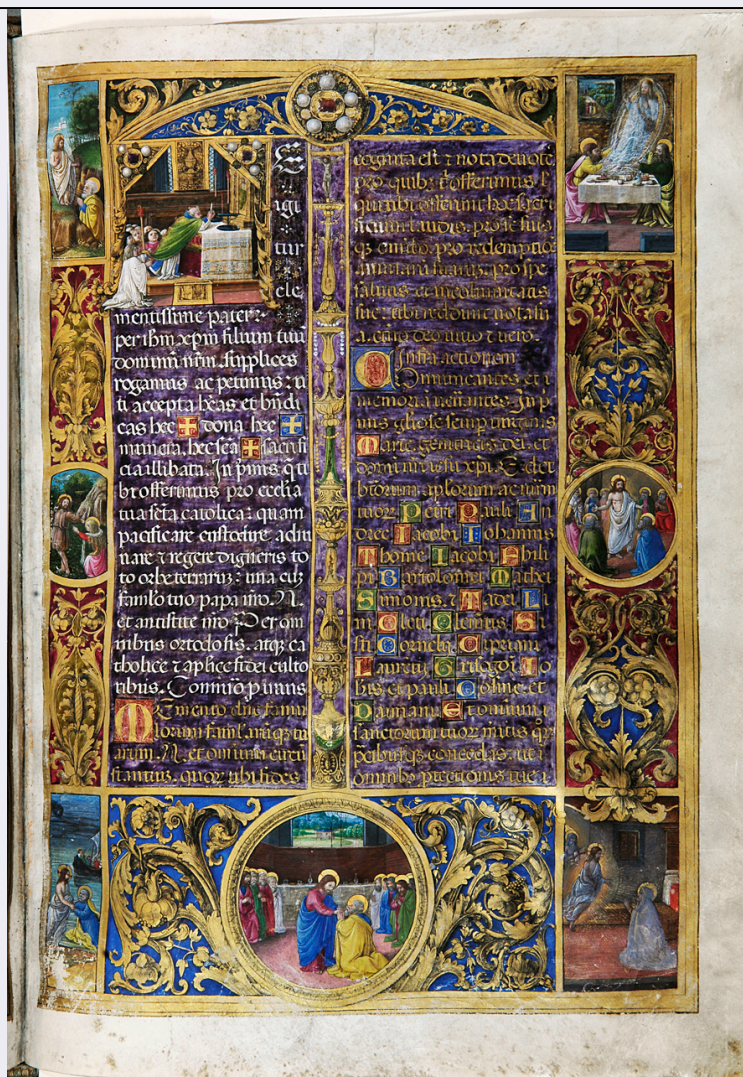 E
igi
tur
cle
mentissime pater :
per ihm xpm filium tuu
dominu nrm supplices
rogamus ac petimus : u
ti accepta heas et bndi
cas hec dona hec
munera. hec sca sacrifi
cia illibata. In pmis q ti
bi offerimus pro ecclia
tua scta catolica : quam
pacificare custodire, adu
nare ⁊ regere digneris to
to orbe terraruz : una cuz
famlo tuo papa nro .N.
et antistite nro et om
nibus ortodosis. atqz ca
tholice ⁊ aplice fidei culto
ribus.
Memento dne famu
lorum famlaruqz tu
arum .N. et omnium circu
stantium. quor tibi fides
cognita est ⁊ nota devotio
pro quibz t offerimus l
qui tibi offerunt hoc sacri
ficium laudis. pro se suis
qz omibz. pro redemptio
animaru suaruz. pro spe
salutis et incolumitatis
sue. tibi reddunt vota su
a. eterno deo vivo ⁊ vero.
Infra actionem
Comunicantes. et
memoria venerantes. In p
mis gliose semp virginis
Marie genitricis dei. et
domini nri ihu xpi. Sed et
btorum aplorum ac mar
tiruz Petri Pauli An
dree Iacobi Iohannis
Thome Iacobi Phili
pi Bartolomei Mathei
Simonis. ⁊ Tadei Li
ni Cleti Clemtis Si
sti Cornelii Cipriani
Laureti Grisogoi Io
his et pauli Cosme et
Damiani Et omnium
sanctorum tuor mitis qz
pcibusqz concedas. ut i
omnibz ptectionis tue